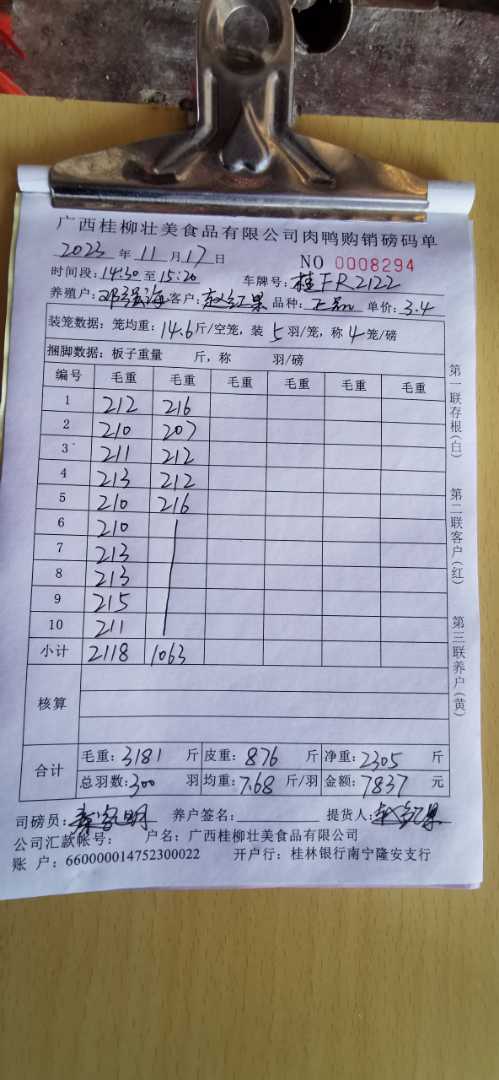 广西桂柳壮美食品有限公司肉鸭购销磅码单
2023 年 11 月 17 日 NO 0008294
时间段: 14:30 至 15:20 车牌号: 桂FR2122
养殖户: 邓强海 客户: 赵红果 品种: 单价: 3.4
装笼数据: 笼均重: 14.6 斤/空笼, 装 5 羽/笼, 称 4 笼/磅
捆脚数据: 板子重量 斤, 称 羽/磅
编号 毛重 毛重 毛重 毛重 毛重 毛重
1 212 216
2 210 207
3 211 212
4 213 212
5 210 216
6 210
7 213
8 213
9 215
10 211
小计 2118 1063
核算
合计 毛重: 3181 斤 皮重: 876 斤 净重: 2305 斤
总羽数: 300 羽 均重: 7.68 斤/羽 金额: 7837 元
司磅员: 养户签名: 提货人: 赵红果
公司汇款帐号: 户名: 广西桂柳壮美食品有限公司
账 户: 660000014752300022 开户行: 桂林银行南宁隆安支行
第一联存根(白)
第二联客户(红)
第三联养户(黄)